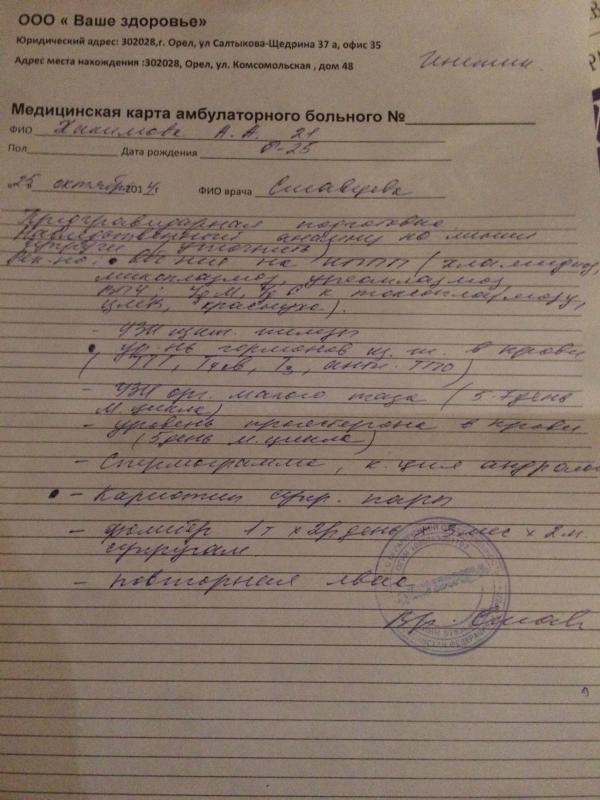 ООО « Ваше здоровье»
Юридический адрес: 302028,г. Орел, ул Салтыкова-Щедрина 37 а, офис 35
Адрес места нахождения :302028, Орел, ул. Комсомольская , дом 48
Медицинская карта амбулаторного больного №
ФИО А. А. 21
Пол Дата рождения
25 октября 2014г ФИО врача
Прегравидарная подготовка
анализу по линии
супруги / уточнить
Рек-но: • на ИППП (хламидиоз,
микоплазмоз, уреаплазмоз,
ВПЧ, Ig M, Ig G к токсоплазмозу,
ЦМВ, краснухе).
- УЗИ щит. железы
• ур-нь гормонов щ. ж. в крови
(ТТГ, Т4св, Т3, анти-ТПО)
- УЗИ орг. малого таза (5-7 день
м. цикла)
- уровень в крови
(5 день м. цикла)
- Спермограмма, к-ция андролога
• - Кариотип супр. пары
- фолибер 1т х 2р день 3 мес х 2 м.
супругам.
- повторная явка
Вр.